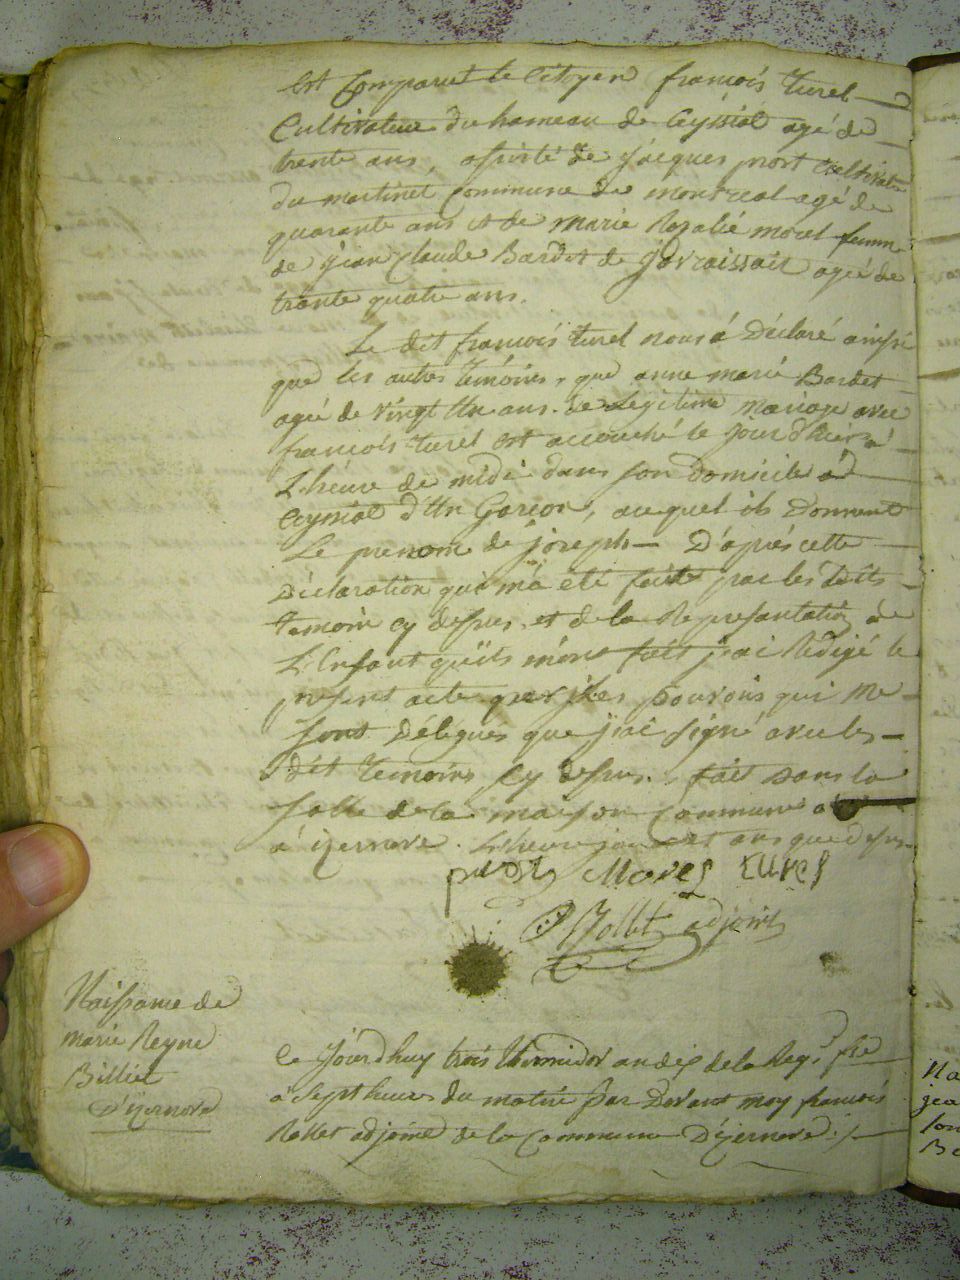 Est Comparut le Citoyen françois turel
Cultivateur du hameau de Ceyssiat agé de
trente ans, assisté de jacques prost Cultivate
du martinet Commune de montreal agé de
quarante ans et de marie Rosalie morel femme
de jean Claude Bardet de agée de
trante quatre ans.
Le dit françois turel nous à Déclaré ainssi
que les autres témoins, que anne marie Bardet
agée de vingt Un ans. de Légitime Mariage avec
françois turel est accouché le jour d'hier à
L'heure de midi dans son Domicile à
Ceyssiat d'Un Garcon, auquel ils Donnent
Le prenom de joseph D'après cette
Déclaration qui m'a eté faite par les Dits
temoin cy dessus, et de la Representation de
L'Enfant qu'ils m'ont fait j'ai Redigé le
present acte les pouvoirs qui me
sont Délegues que j'ai signé avec les
dit temoins Cy dessus. fait dans la
salle de la maison Commune
à izernore. L'heure jour et ans que dessus
Morel turel
Rollet adjoint
Naissance de
marie Reyne
Billiet
D'izernore
Ce jourdhuy trois thermidor an dix de la Rep. fse
à sept heures du matin Par Devant moy françois
Rollet adjoint de la Commune D'izernore